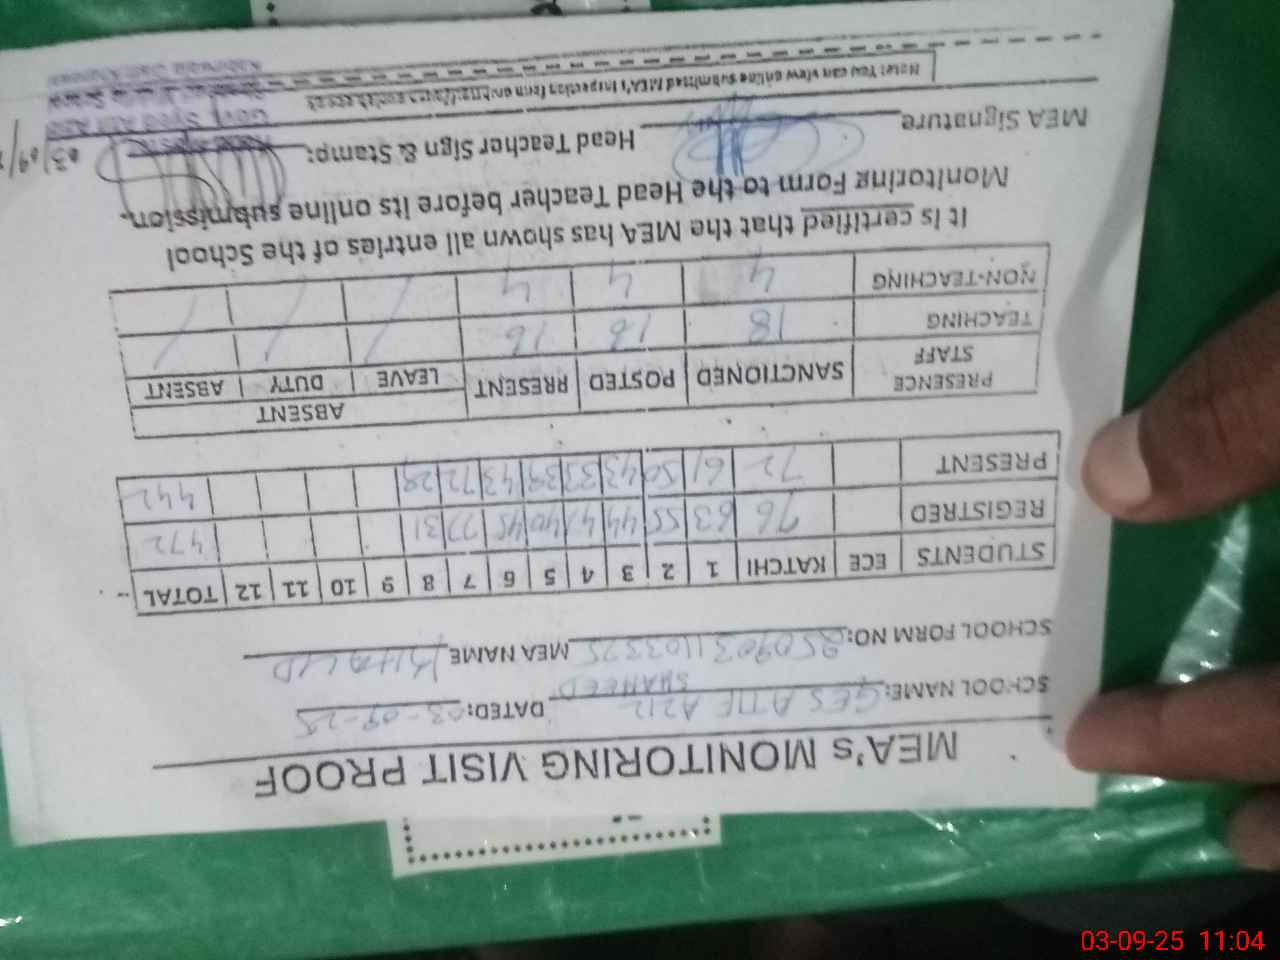 MEA's MONITORING VISIT PROOF
SCHOOL NAME: GES ATIF AZIZ SHAHEED DATED: 03-09-25
SCHOOL FORM NO: 2509031103325 MEA NAME KHALID
STUDENTS ECE KATCHI 1 2 3 4 5 6 7 8 9 10 11 12 TOTAL
REGISTRED 76 63 55 44 41 40 45 77 31 472
PRESENT 72 61 50 43 33 39 43 72 29 442
PRESENCE STAFF SANCTIONED POSTED PRESENT ABSENT
LEAVE DUTY ABSENT
TEACHING 18 16 16 / / /
NON-TEACHING 4 4 4 / / /
It is certified that the MEA has shown all entries of the School
Monitoring Form to the Head Teacher before its online submission.
MEA Signature Head Teacher Sign & Stamp:
03/09/
Note: You can view online submitted MEA's inspection form on
03-09-25 11:04